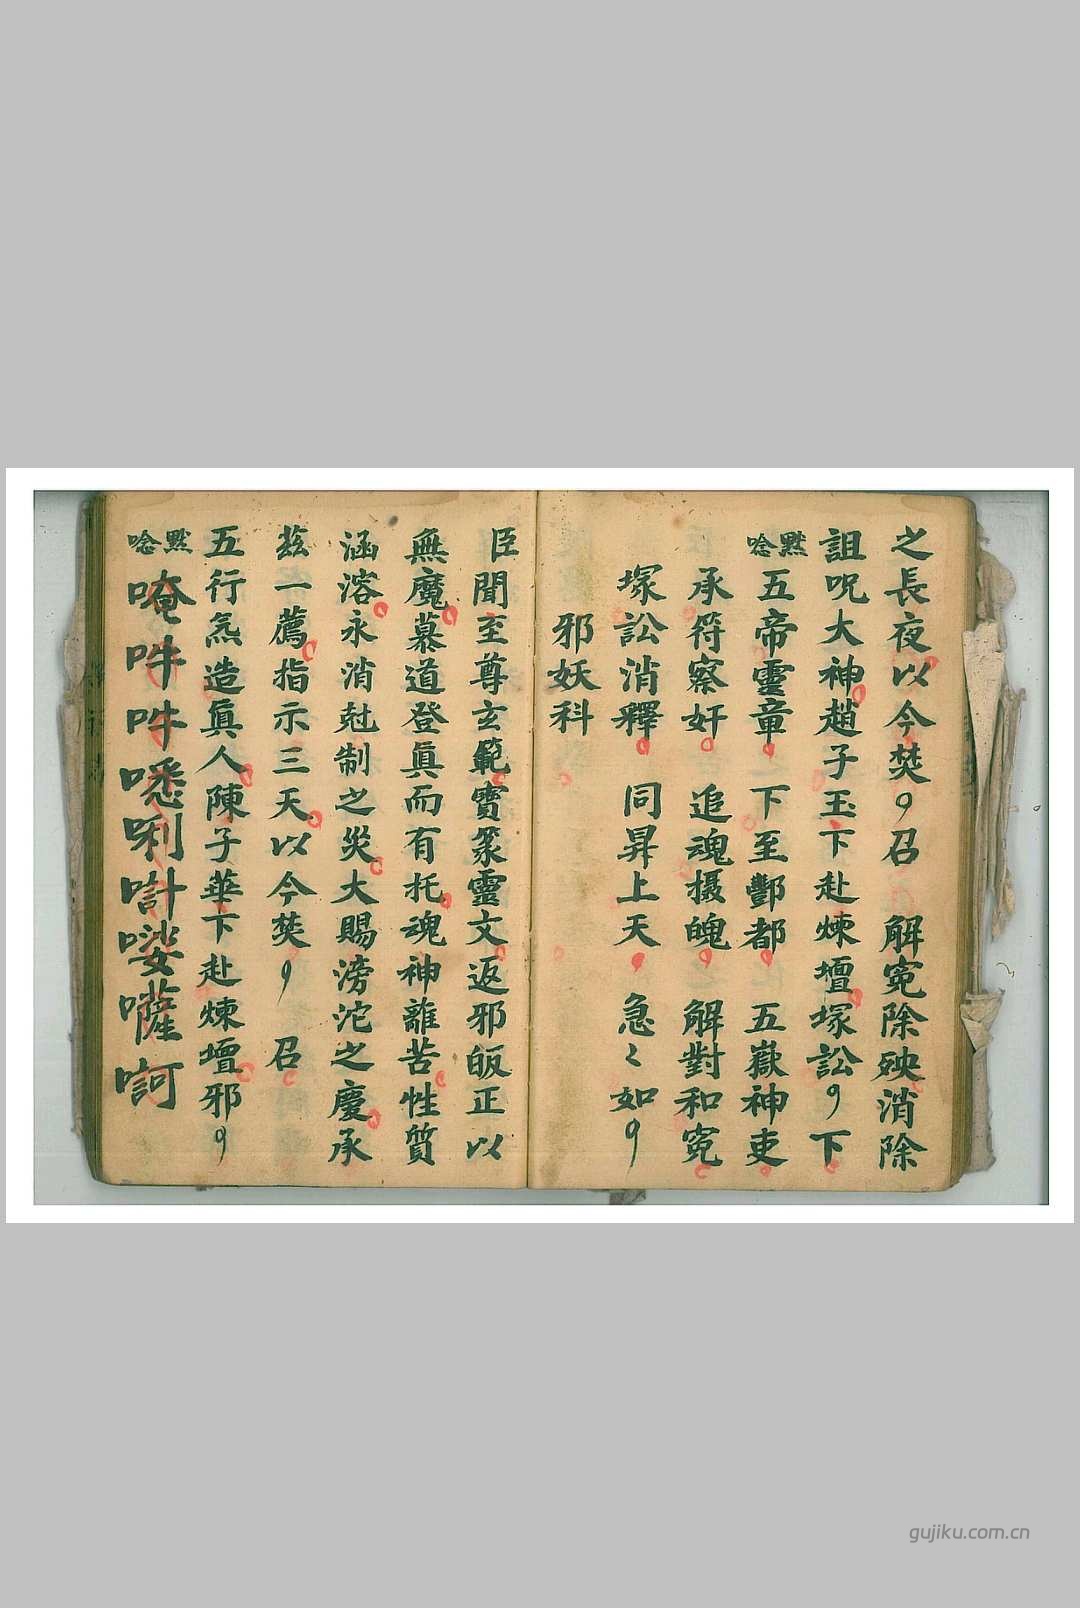 之長夜以今焚々召 解寃除殃消除
詛呪大神趙子玉下赴煉壇塚訟々下
默唸五帝靈童下至酆都 五嶽神吏
承符察奸 追魂摄魄 解對和寃
塚訟消釋 同昇上天 急々如々
邪妖科
臣聞至尊玄範寳篆靈文返邪皈正以
無魔慕道登眞而有托魂神離苦性質
涵溶永消尅制之災大賜滂沱之慶承
兹一薦指示三天以今焚々 召
五行炁造眞人陳子華下赴煉壇邪々
默唸唵吽吽㗭唎㖇㗌㘕訶
gujiku.com.cn